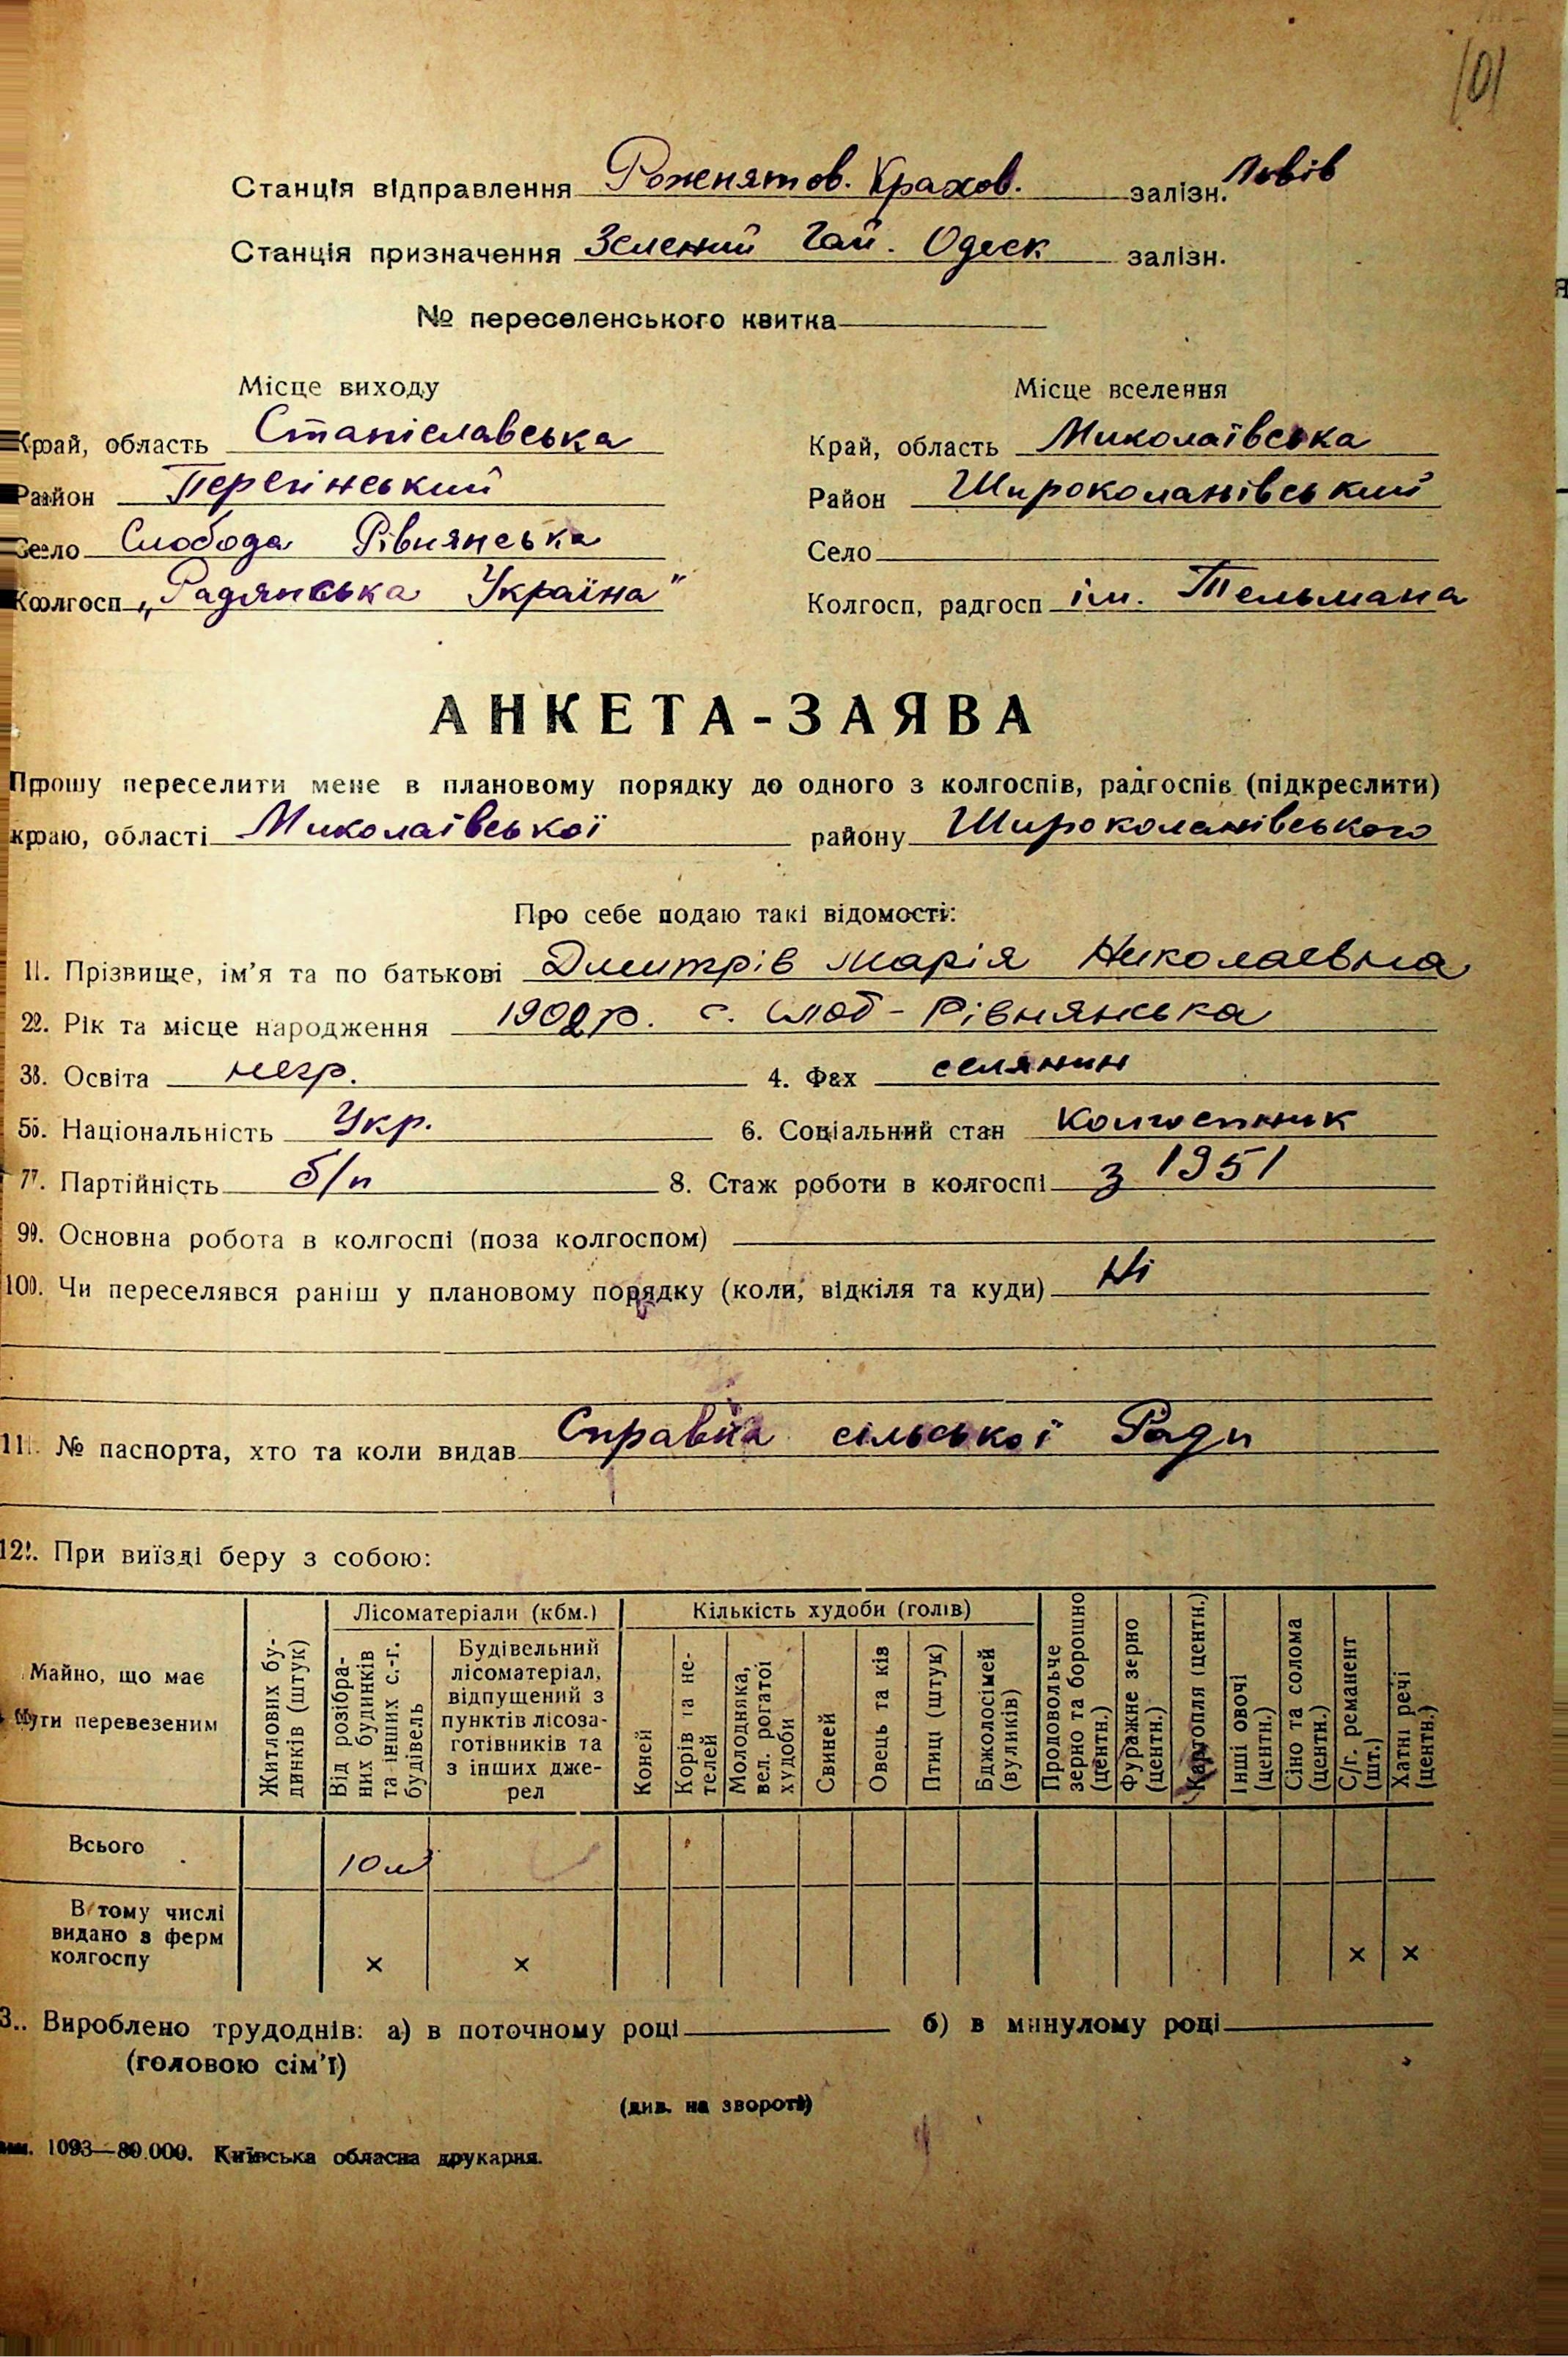 101
Станція відправлення Роженятов. Крахов. залізн. Львів
Станція призначення Зелений Гай. Одеск залізн.
№ переселенського квитка
Місце виходу Місце вселення
Край, область Станіславська Край, область Миколаївська
Район Перегінський Район Широколанівський
Село Слобода Рівнянська Село
Колгосп „Радянська Україна" Колгосп, радгосп ім. Тельмана
АНКЕТА-ЗАЯВА
Прошу переселити мене в плановому порядку до одного з колгоспів, радгоспів (підкреслити)
краю, області Миколаївської району Широколанівського
Про себе подаю такі відомості:
1. Прізвище, ім'я та по батькові Дмитрів Марія Николаевна
2. Рік та місце народження 1902 р. с. Слоб-Рівнянська
3. Освіта негр. 4. Фах селянин
5. Національність Укр. 6. Соціальний стан Колгоспник
7. Партійність б/п 8. Стаж роботи в колгоспі з 1951
9. Основна робота в колгоспі (поза колгоспом)
10. Чи переселявся раніш у плановому порядку (коли, відкіля та куди) Ні
11. № паспорта, хто та коли видав Справка сільської Ради
12. При виїзді беру з собою:
Майно, що має бути перевезеним
Житлових будинків (штук)
Лісоматеріали (кбм.)
Від розібраних будинків та інших с.-г. будівель
Будівельний лісоматеріал, відпущений з пунктів лісозаготівників та з інших джерел
Кількість худоби (голів)
Коней
Корів та нетелей
Молодняка, вел. рогатої худоби
Свиней
Овець та ків
Птиці (штук)
Бджолосімей (вуликів)
Продовольче зерно та борошно (центн.)
Фуражне зерно (центн.)
Картопля (центн.)
Інші овочі (центн.)
Сіно та солома (центн.)
С/г. реманент (шт.)
Хатні речі (центн.)
Всього 10 м³
В тому числі видано з ферм колгоспу × × × ×
3. Вироблено трудоднів: а) в поточному році б) в минулому році
(головою сім'ї)
(див. на звороті)
зам. 1093—80.000. Київська обласна друкарня.